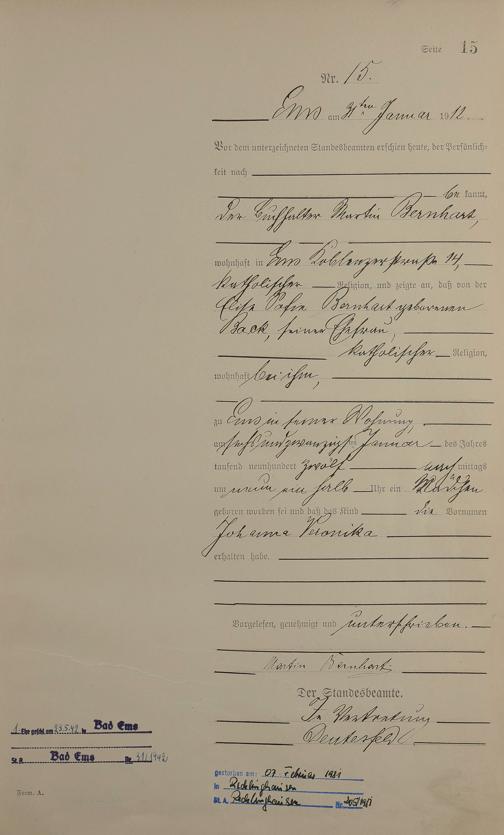 Seite 15
Nr. 15.
Ems am 31ten Januar 1912
Vor dem unterzeichneten Standesbeamten erschien heute, der Persönlich-
keit nach
be kannt,
der Buchhalter Martin Bernhart,
wohnhaft in Ems Koblenzerstraße 14,
katholischer Religion, und zeigte an, daß von der
Elise Bernhart geborenen
Back, seiner Ehefrau,
katholischer Religion,
wohnhaft bei ihm,
zu Ems in seiner Wohnung,
am sechsundzwanzigsten Januar des Jahres
tausend neunhundert zwölf nach mittags
um neun ein halb Uhr ein Mädchen
geboren worden sei und daß das Kind die Vornamen
Johanna Veronika
erhalten habe.
Vorgelesen, genehmigt und unterschrieben.
Martin Bernhart
Der Standesbeamte.
In Vertretung
1. Ehe geschl. am 23.5.42 in Bad Ems
St. A. Bad Ems Nr. 21/1942
gestorben am: 07. Februar 1981
in Recklinghausen
St. A. Recklinghausen Nr.
Form. A.